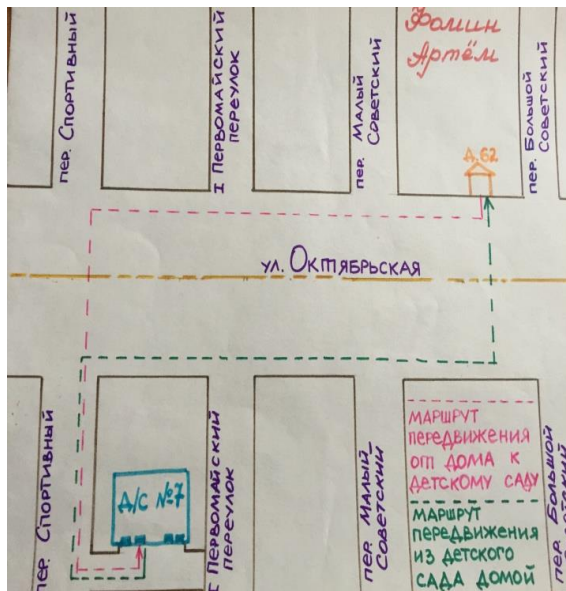 пер. Спортивный
I Первомайский
переулок
пер. Малый
Советский
Фомин
Артём
пер. Большой
Советский
д.62
ул. Октябрьская
пер. Спортивный
Д/С №7
I Первомайский
переулок
пер. Малый
Советский
маршрут
передвижения
от дома к
детскому саду
маршрут
передвижения
из детского
сада домой
пер. Большой